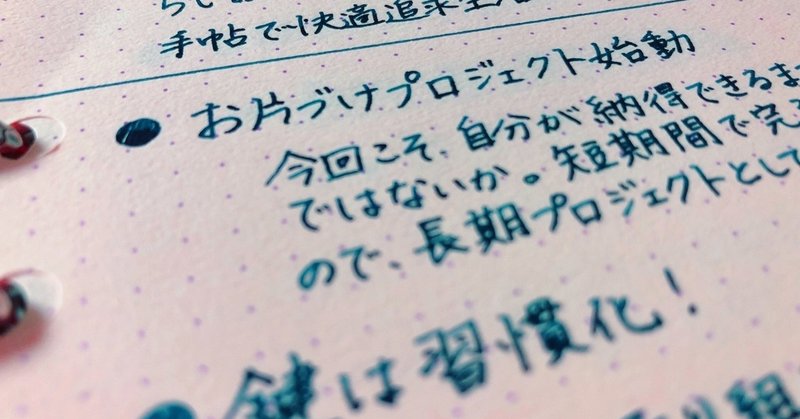 手帖で快適追求生
● お片づけプロジェクト始動
今回こそ、自分が納得できるま
ではないか。短期間で完
ので、長期プロジェクトとして
鍵は習慣化!
組